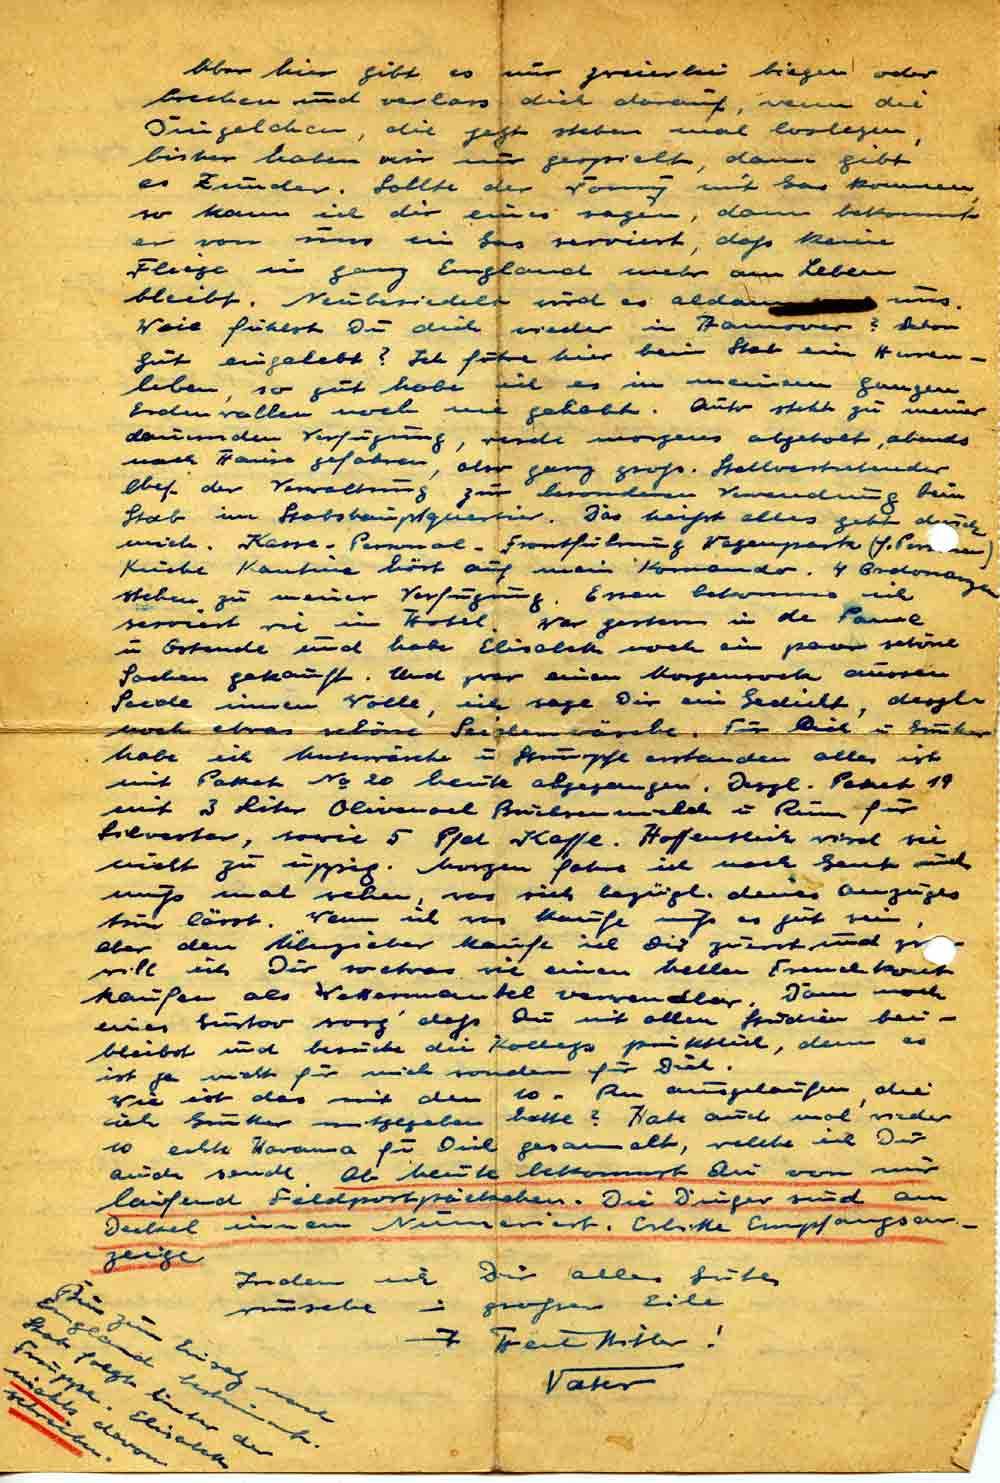 Aber hier gibt es nur zweierlei biegen oder
brechen und verlass dich darauf, wenn die
Dingelchen, die jetzt stehen mal loslegen,
bisher haben wir nur gespielt, dann gibt
es Zunder. Sollte der Tommy mit Gas kommen,
so kann ich dir eines sagen, dann bekommt
er von uns ein Gas serviert, dass keine
Fliege in ganz England mehr am Leben
bleibt. Neubesiedelt wird es aldann uns.
Wie fühlst Du dich wieder in Hannover? Schon
gut eingelebt? Ich führe hier beim Stab ein Huren-
leben, so gut habe ich es in meinem ganzen
Erdenwallen noch nie gehabt. Auto steht zu meiner
dauernden Verfügung, werde morgens abgeholt, abends
nach Hause gefahren, also ganz gross. Stellvertretender
Chef der Verwaltung zur besonderen Verwendung beim
Stab im Stabshauptquartier. Das heisst alles geht durch
mich. Kasse - Personal - Frontführung Wagenpark
Küche Kantine hört auf mein Komando. 4 Ordonanzen
stehen zu meiner Verfügung. Essen bekomme ich
serviert wie im Hotel. War gestern in de Panne
u Ostende und habe Elisabeth noch ein paar schöne
Sachen gekauft. Und zwar einen Morgenrock aussen
Seide innen Wolle, ich sage Dir ein Gedicht, desgl.
noch etwas schöne Seidenwäsche. Für Dich u
habe ich Unterwäsche u Strümpfe erstanden alles ist
mit Paket No 20 heute abgegangen. Desgl. Paket 19
mit 3 Liter Olivenoel Büchsenmilch u Rum für
Silvester, sowie 5 Pfd Kaffe. Hoffentlich wird sie
nicht zu üppig. Morgen fahre ich nach Gent und
muss mal sehen, was sich bezügl. deines Anzuges
tun lässt. Wenn ich was kaufe muss es gut sein,
aber den Überzieher kaufe ich Dir zuerst und
will ich Dir so etwas wie einen hellen Trenchkout
kaufen als Wettermantel verwendbar. Dann noch
eines Gustav sorg' dass Du mit allen Studien bei-
bleibst und besuche die Kollegs pünktlich, denn es
ist ja nicht für mich sondern für Dich.
Wie ist das mit den 10.- Rm ausgelaufen, die
ich mitgegeben hatte? Habe auch mal wieder
10 echte Havanna für Dich gesammelt, welche ich Dir
auch sende. Ab heute bekommst Du von mir
laufend Feldpostpäckchen. Die Dinger sind am
Deckel innen Numeriert. Erbitte Empfangsan-
zeige
Indem ich Dir alles Gute
wünsche i grosser Eile
Heil Hitler!
Vater
Bin zum Einsatz nach
England bestimmt.
Stab folgt hinter der
Truppe. Elisabeth
nichts davon
schreiben.